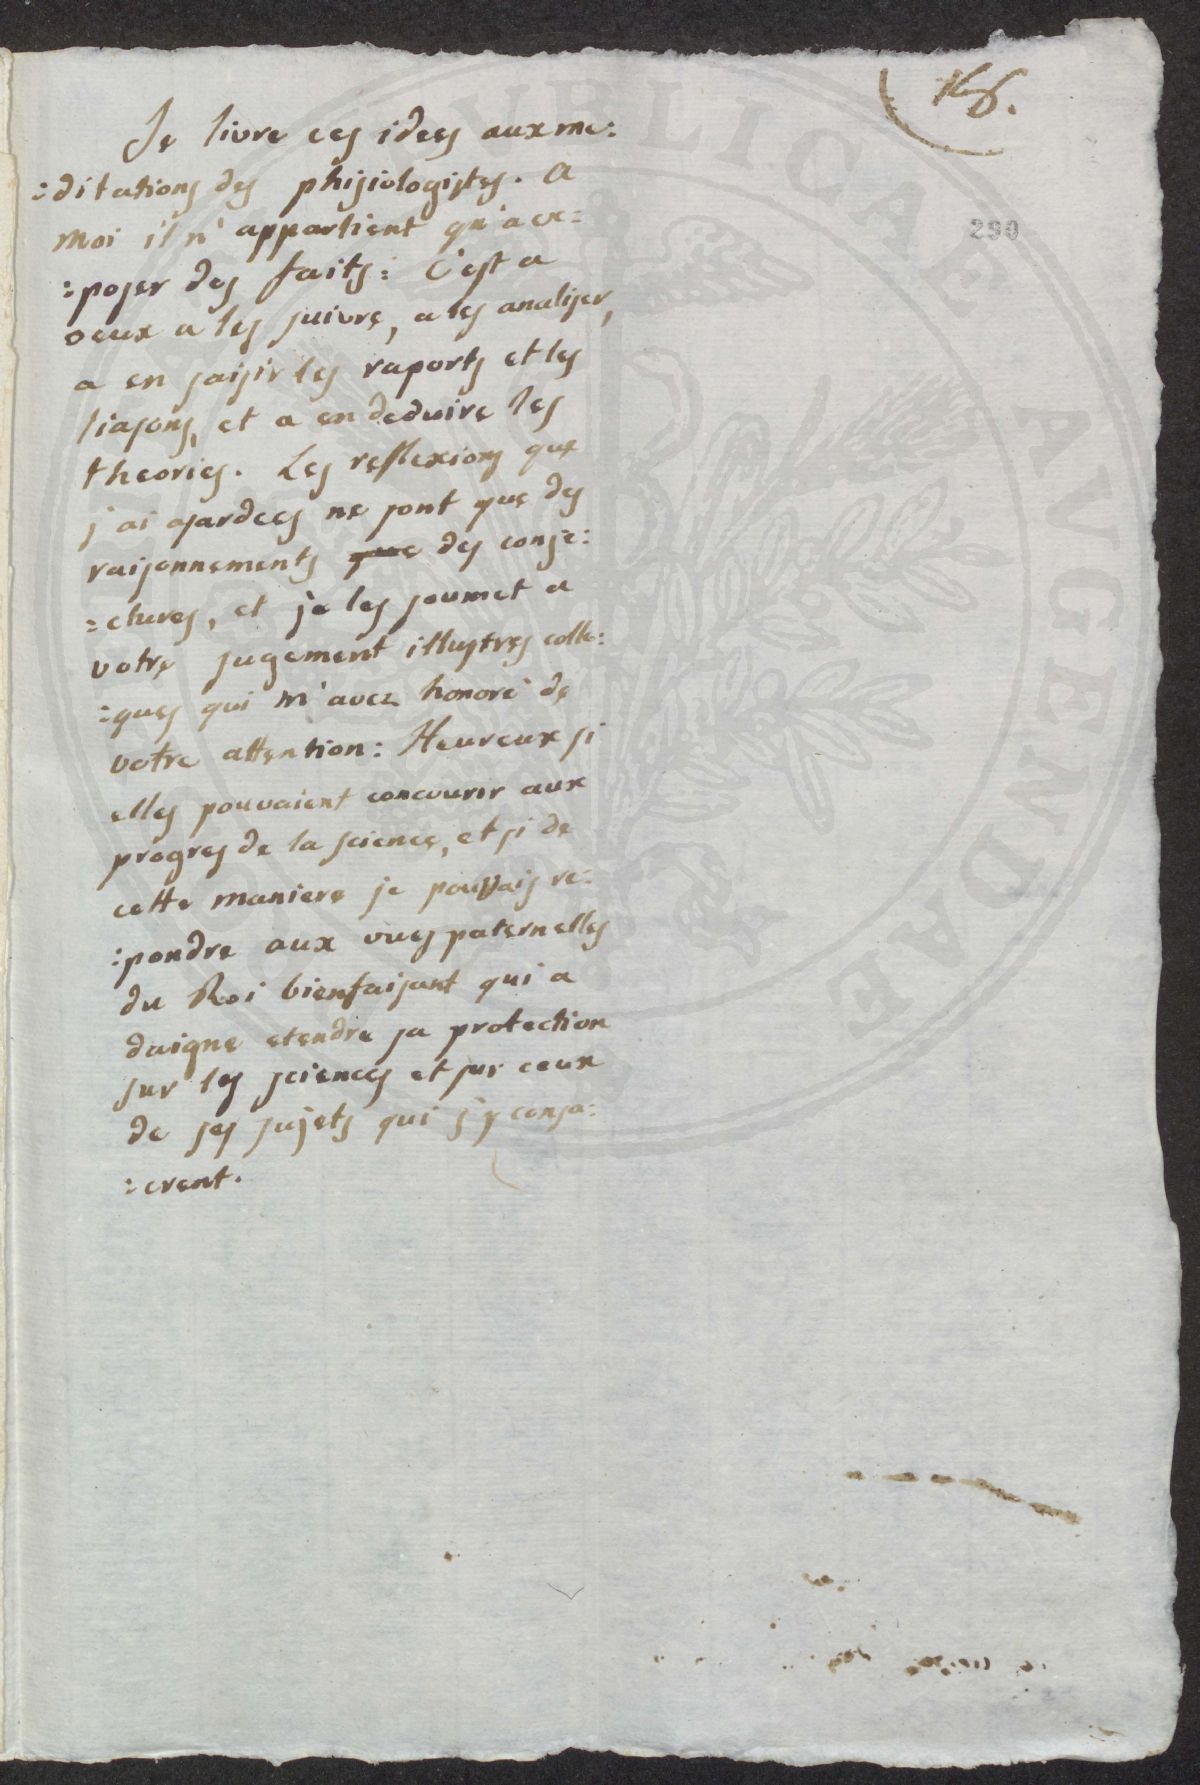 166.
290
Je livre ces idees aux me:
:ditations des phisiologistes. A
moi il n'appartient qu'a ex:
:poser des faits: C'est a
ceux a les suivre, a les analiser,
a en saisir les raports et les
liasons, et a en deduire les
theories. Les reflexions que
j'ai asardees ne sont que des
raisonnements que des conje:
:ctures, et je les soumet a
votre jugement illustres colle:
:gues qui m'avez honoré de
votre attention: Heureux si
elles pouvaient concourir aux
progres de la science, et si de
cette maniere je pouvais re:
:pondre aux vues paternelles
du Roi bienfaisant qui a
daigne etendre sa protection
sur les sciences et sur ceux
de ses sujets qui s'y consa:
:crent.
PUBLICAE
AUGENDAE